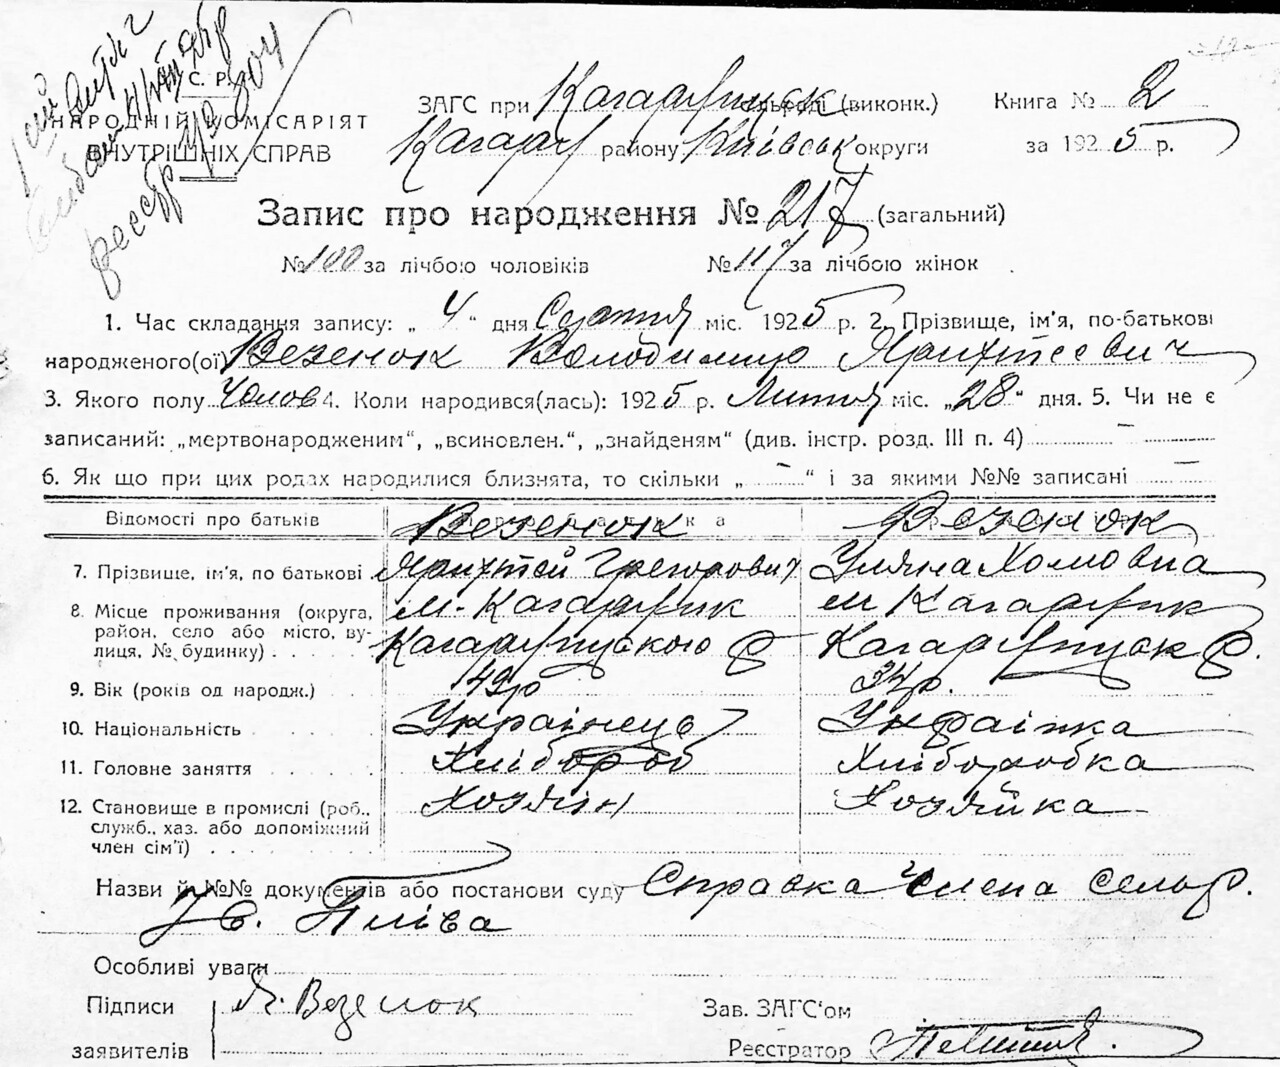 С. Р. Р.
НАРОДНІЙ КОМІСАРІЯТ
ВНУТРІШНІХ СПРАВ
реєстр № 304
ЗАГС при Кагарлицьк сільраді (виконк.)
Кагарл району Київськ округи
Книга № 2
за 1925 р.
Запис про народження № 217 (загальний)
№ 100 за лічбою чоловіків № 117 за лічбою жінок
1. Час складання запису: „ 4 “ дня міс. 1925 р. 2. Прізвище, ім'я, по-батькові
народженого(ої) Везенюк Володимир
3. Якого полу Чолов 4. Коли народився(лась): 1925 р. Лютня міс. „28“ дня. 5. Чи не є
записаний: „мертвонародженим“, „всиновлен.“, „знайденям“ (див. інстр. розд. III п. 4)
6. Як що при цих родах народилися близнята, то скільки „ — “ і за якими №№ записані —
Відомості про батьків Везенюк Везенюк
7. Прізвище, ім'я, по батькові Григорович Уляна Хомовна
8. Місце проживання (округа, м. Кагарлик м Кагарлик
район, село або місто, ву- Кагарлицького р Кагарлицьк р.
лиця, № будинку)
9. Вік (років од народж.) 49р 34р.
10. Національність Українець Українка
11. Головне заняття Хлібороб Хліборобка
12. Становище в промислі (роб., Хозяін Хозяйка
служб., хаз. або допоміжний
член сім'ї)
Назви й №№ документів або постанови суду Справка члена сельр.
Особливі уваги
Підписи Везенюк Зав. ЗАГС‘ом
заявителів Реєстратор